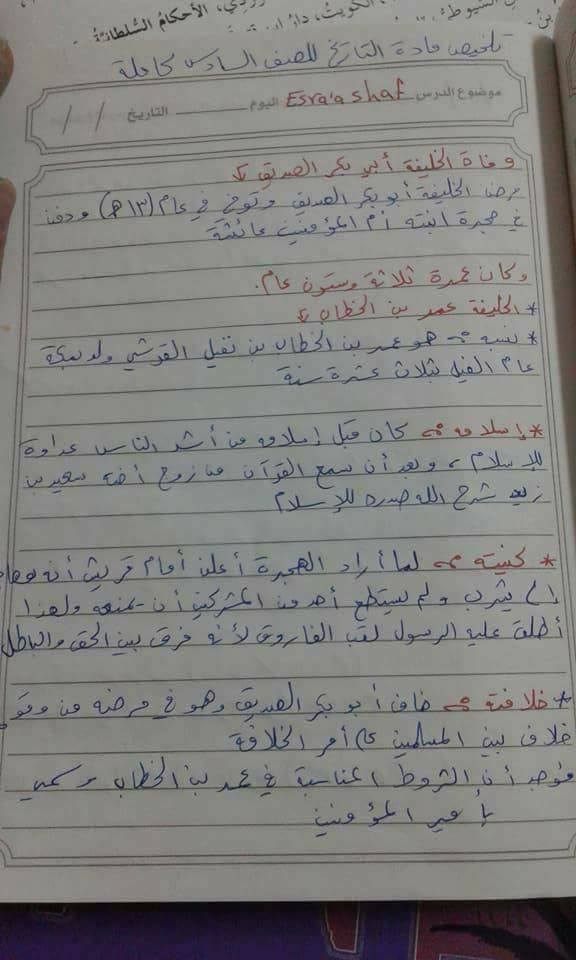 السيوطي، الكويت، دار
الأحكام السلطانية
تلخيص مادة التاريخ للصف السادس كاملة
موضوع الدرس Esra'a shaf اليوم التاريخ / /
وفاة الخليفة أبي بكر الصديق
مرض الخليفة أبو بكر الصديق وتوفي في عام (١٣ هـ) ودفن
في حجرة ابنته أم المؤمنين عائشة
وكان عمرة ثلاثة وستون عام.
* الخليفة عمر بن الخطاب
* نسبه هو عمر بن الخطاب بن نفيل القرشي ولد بمكة
عام الفيل بثلاث عشرة سنة
* إسلامه كان قبل إسلامه من أشد الناس عداوة
للإسلام، وبعد أن سمع القرآن من زوج أخته سعيد بن
زيد شرح الله صدره للإسلام
* كنيته لما أراد الهجرة أعلن أمام قريش أنه
إلى يثرب ولم يستطع أحد من المشركين أن يمنعه ولهذا
أطلق عليه الرسول لقب الفاروق لأنه فرق بين الحق والباطل
* خلافتة خاف أبو بكر الصديق وهو في مرضه من وقوع
خلاف بين المسلمين على أمر الخلافة
فوجد أن الشروط المناسبة في عمر بن الخطاب وسمي
بأمير المؤمنين